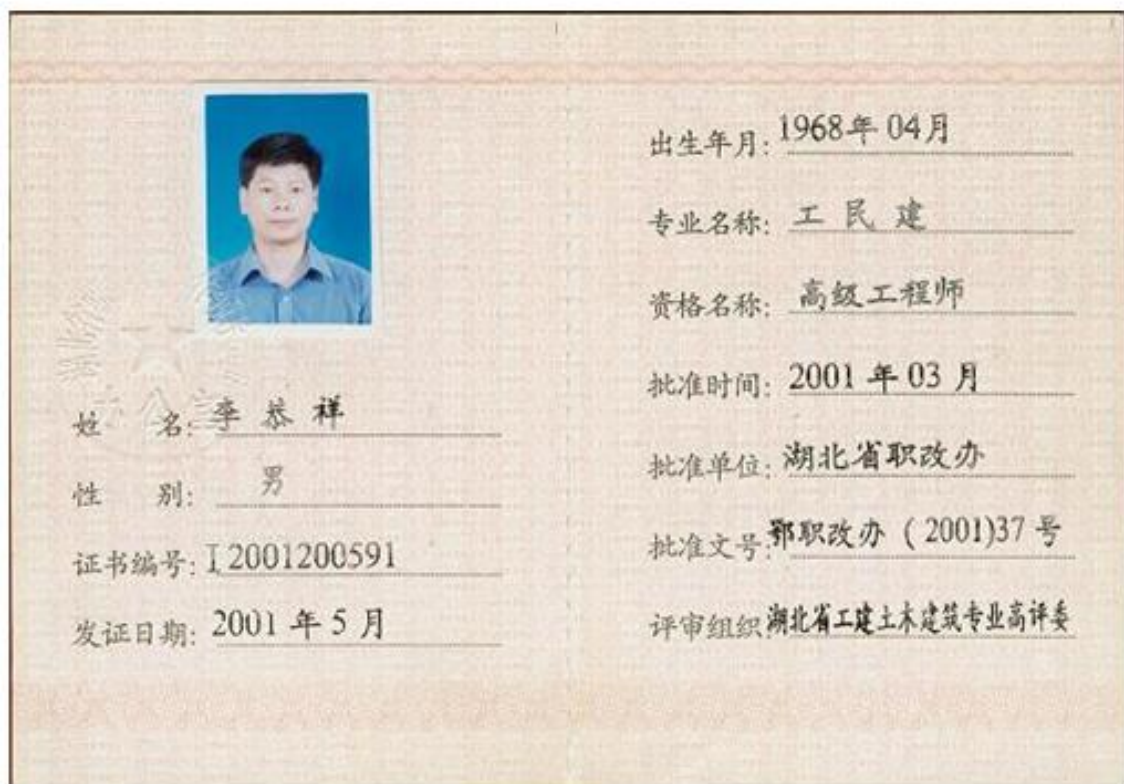 姓 名: 李恭祥
性 别: 男
证书编号: I 2001200591
发证日期: 2001 年 5 月
出生年月: 1968年 04月
专业名称: 工民建
资格名称: 高级工程师
批准时间: 2001 年 03 月
批准单位: 湖北省职改办
批准文号: 鄂职改办 ( 2001)37 号
评审组织: 湖北省工建土木建筑专业高评委